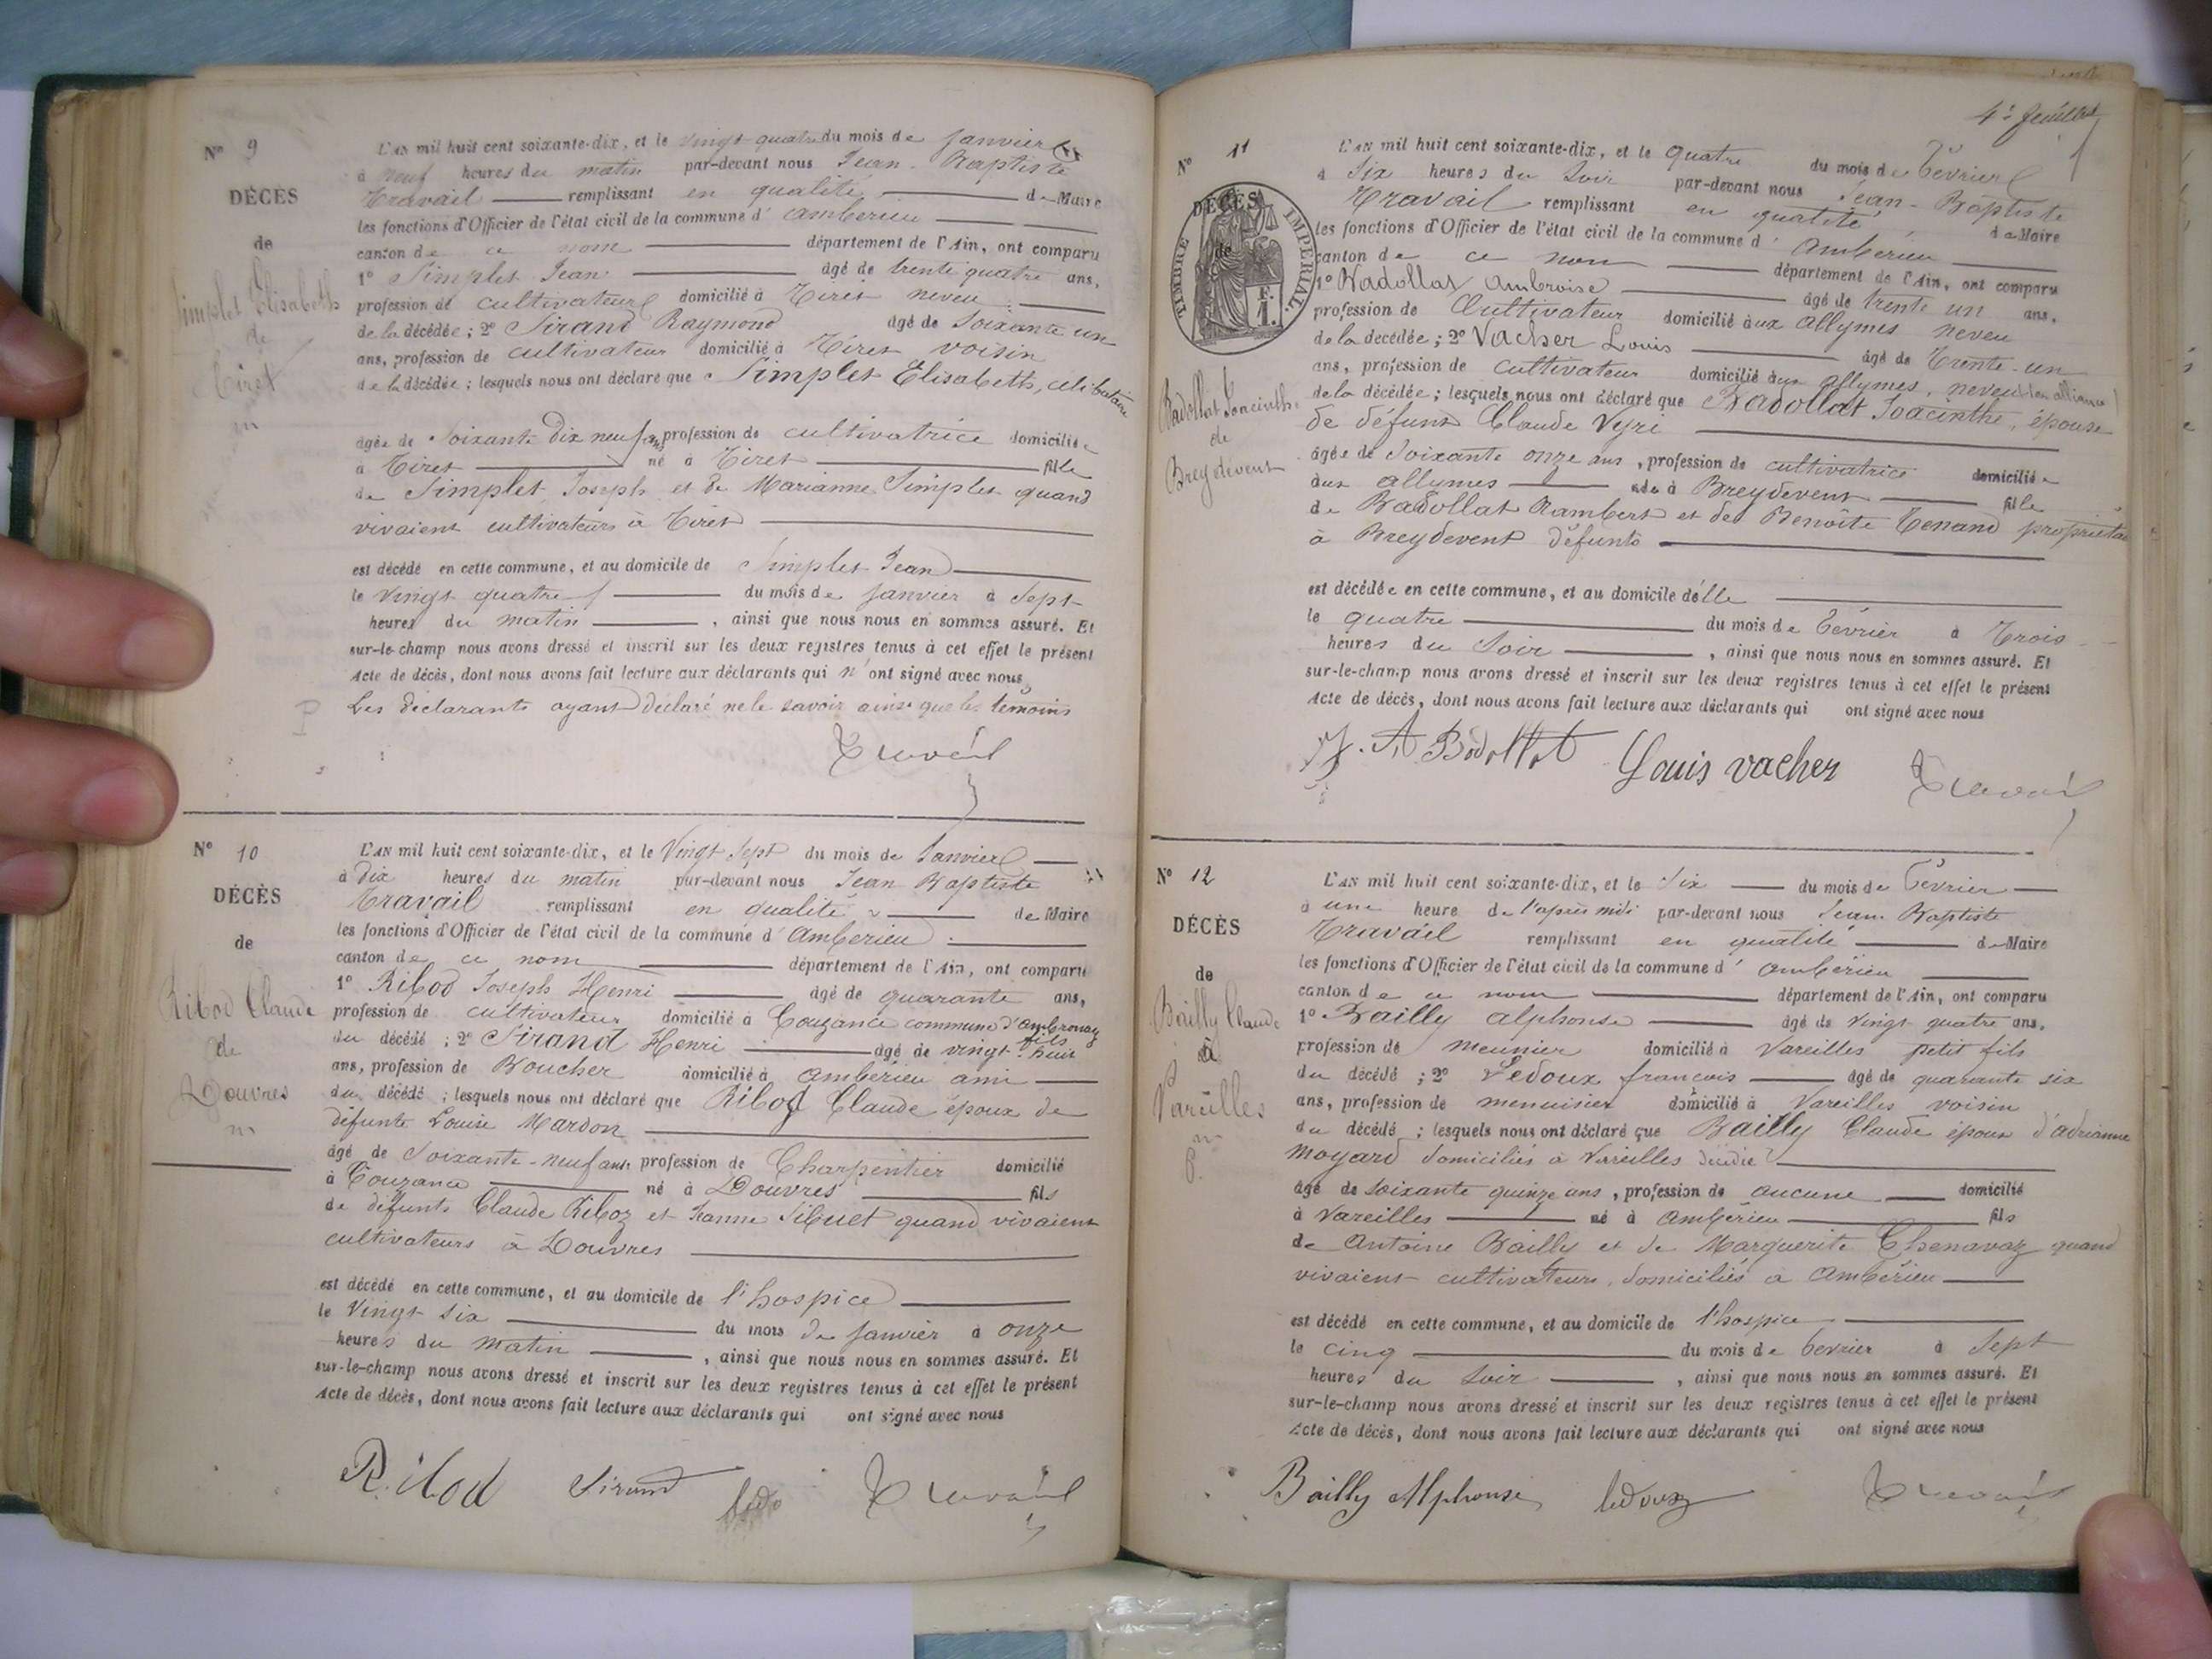 N° 9
DÉCÈS
de
Simplet Elisabeth
de
Tiret
L'AN mil huit cent soixante-dix, et le vingt-quatre du mois de Janvier
à neuf heures du matin par-devant nous Jean-Baptiste
Travail remplissant en qualité de Maire
les fonctions d'Officier de l'état civil de la commune d'Ambérieu
canton de ce nom département de l'Ain, ont comparu
1° Simplet Jean âgé de trente quatre ans,
profession de cultivateur domicilié à Tiret neveu
de la décédée; 2° Sirand Raymond âgé de soixante un
ans, profession de cultivateur domicilié à Tiret voisin
de la décédée; lesquels nous ont déclaré que Simplet Elisabeth, célibataire
âgée de soixante dix neuf ans profession de cultivatrice domiciliée
à Tiret né à Tiret fille
de Simplet Joseph et de Marianne Simplet quand
vivaient cultivateurs à Tiret
est décédé en cette commune, et au domicile de Simplet Jean
le vingt quatre du mois de Janvier à Sept
heures du matin, ainsi que nous nous en sommes assuré. Et
sur-le-champ nous avons dressé et inscrit sur les deux registres tenus à cet effet le présent
Acte de décès, dont nous avons fait lecture aux déclarants qui n'ont signé avec nous
Les déclarants ayant déclaré ne le savoir ainsi que les témoins
Travail
N° 10
DÉCÈS
de
Ribod Claude
de
Douvres
m
L'AN mil huit cent soixante-dix, et le Vingt Sept du mois de Janvier
à dix heures du matin par-devant nous Jean Baptiste
Travail remplissant en qualité de Maire
les fonctions d'Officier de l'état civil de la commune d'Ambérieu
canton de ce nom département de l'Ain, ont comparu
1° Ribod Joseph Henri âgé de quarante ans,
profession de cultivateur domicilié à Couzance commune d'Ambronay fils
du décédé; 2° Sirand Henri âgé de vingt-huit
ans, profession de Boucher domicilié à Ambérieu ami
du décédé; lesquels nous ont déclaré que Ribod Claude époux de
défunte Louise Mardon
âgé de soixante-neuf ans profession de Charpentier domicilié
à Couzance né à Douvres fils
de défunts Claude Riboz et Jeanne Sibuet quand vivaient
cultivateurs à Douvres
est décédé en cette commune, et au domicile de l'hospice
le Vingt six du mois de Janvier à onze
heures du matin, ainsi que nous nous en sommes assuré. Et
sur-le-champ nous avons dressé et inscrit sur les deux registres tenus à cet effet le présent
Acte de décès, dont nous avons fait lecture aux déclarants qui ont signé avec nous
Ribod Sirand Travail
4e feuillet
N° 11
DÉCÈS
de
TIMBRE IMPERIAL
F.
1.
Badollat Joacinthe
de
Breydevent
L'AN mil huit cent soixante-dix, et le quatre du mois de Février
à Six heures du Soir par-devant nous Jean-Baptiste
Travail remplissant en qualité de Maire
les fonctions d'Officier de l'état civil de la commune d'Ambérieu
canton de ce nom département de l'Ain, ont comparu
1° Badollat Ambroise âgé de trente un ans,
profession de Cultivateur domicilié aux Allymes neveu
de la décédée; 2° Vacher Louis âgé de Trente-un
ans, profession de cultivateur domicilié aux Allymes, neveu (par alliance)
de la décédée; lesquels nous ont déclaré que Badollat Joacinthe, épouse
de défunt Claude Vyri
âgée de soixante onze ans, profession de cultivatrice domiciliée
aux Allymes née à Breydevent fille
de Badollat Rambert et de Benoîte Tenand propriétai
à Breydevent défunts
est décédée en cette commune, et au domicile d'elle
le quatre du mois de Février à Trois
heures du Soir, ainsi que nous nous en sommes assuré. Et
sur-le-champ nous avons dressé et inscrit sur les deux registres tenus à cet effet le présent
Acte de décès, dont nous avons fait lecture aux déclarants qui ont signé avec nous
A Badollat Louis vacher Travail
N° 12
DÉCÈS
de
Bailly Claude
à
Vareilles
m
P.
L'AN mil huit cent soixante-dix, et le Six du mois de Février
à une heure de l'après midi par-devant nous Jean Baptiste
Travail remplissant en qualité de Maire
les fonctions d'Officier de l'état civil de la commune d'Ambérieu
canton de ce nom département de l'Ain, ont comparu
1° Bailly Alphonse âgé de vingt-quatre ans,
profession de meunier domicilié à Vareilles petit fils
du décédé; 2° Ledoux françois âgé de quarante six
ans, profession de menuisier domicilié à Vareilles voisin
du décédé; lesquels nous ont déclaré que Bailly Claude époux d'adrianne
Moyard domiciliés à Vareilles
âgé de soixante quinze ans, profession de aucune domicilié
à Vareilles né à Ambérieu fils
de Antoine Bailly et de Marguerite Chenavaz quand
vivaient cultivateurs, domiciliés à Ambérieu
est décédé en cette commune, et au domicile de l'hospice
le cinq du mois de fevrier à Sept
heures du Soir, ainsi que nous nous en sommes assuré. Et
sur-le-champ nous avons dressé et inscrit sur les deux registres tenus à cet effet le présent
Acte de décès, dont nous avons fait lecture aux déclarants qui ont signé avec nous
Bailly Alphonse ledoux Travail